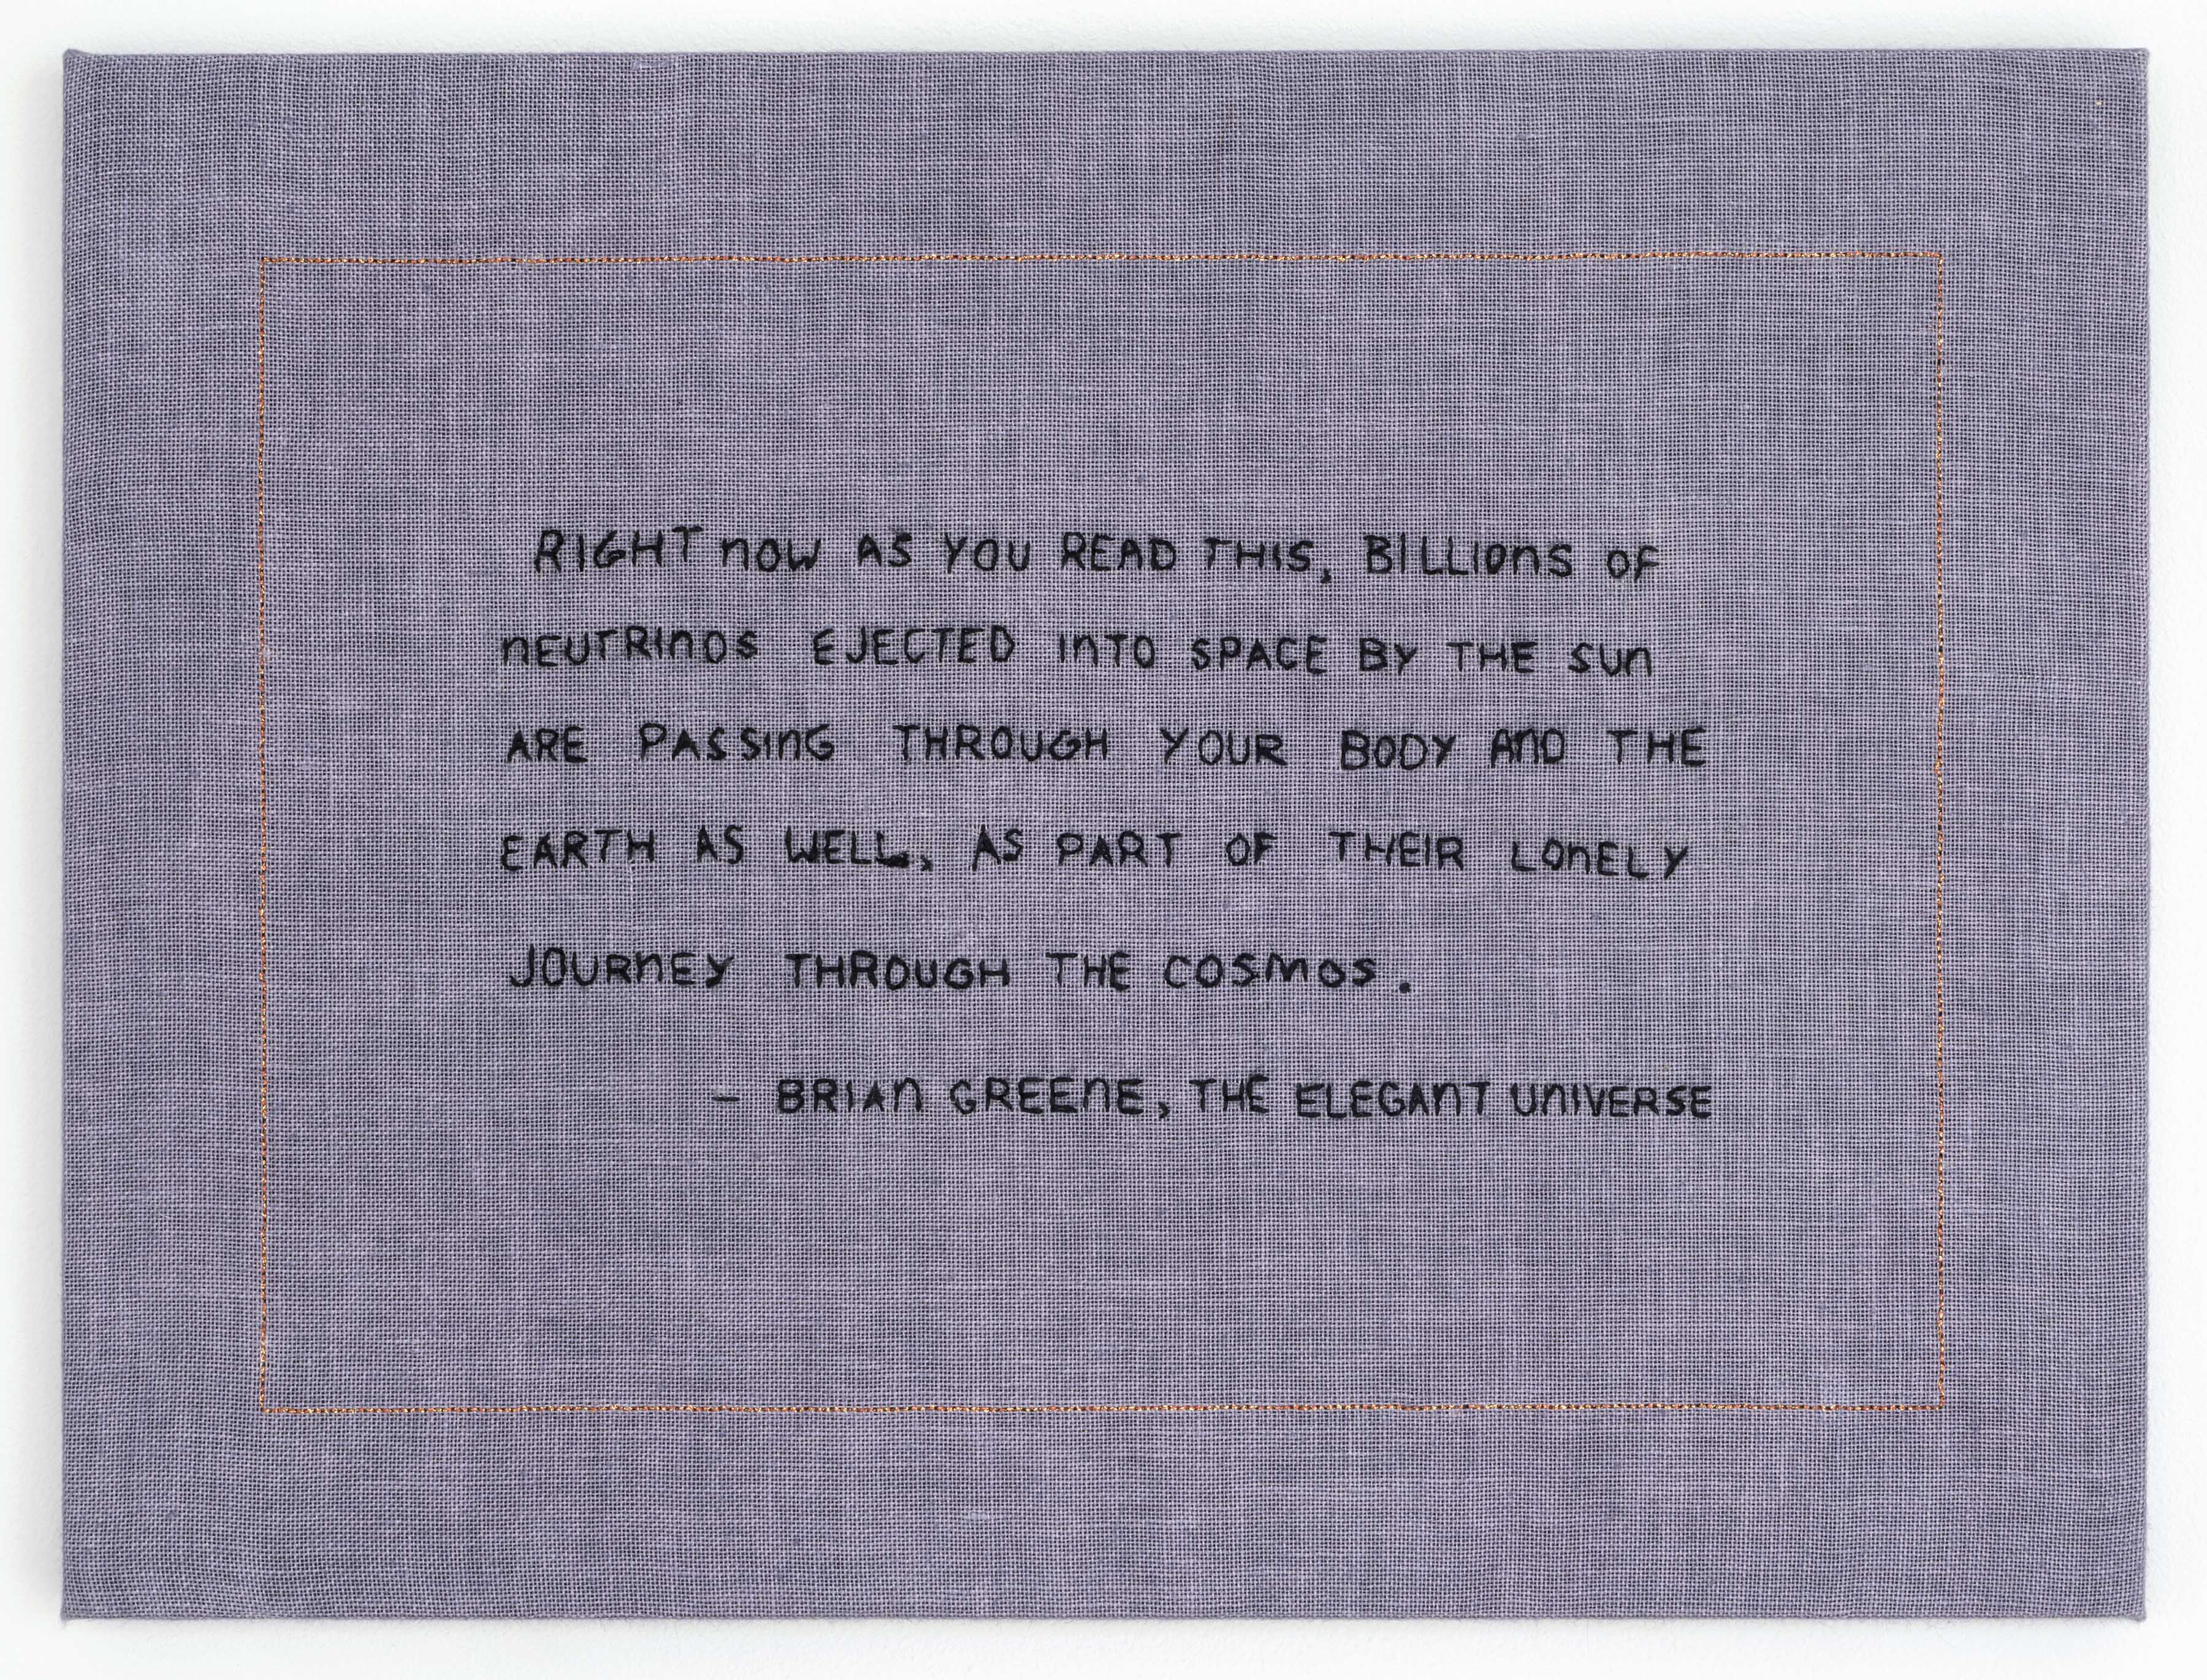 RIGHT NOW AS YOU READ THIS, BILLIONS OF
NEUTRINOS EJECTED INTO SPACE BY THE SUN
ARE PASSING THROUGH YOUR BODY AND THE
EARTH AS WELL, AS PART OF THEIR LONELY
JOURNEY THROUGH THE COSMOS.
– BRIAN GREENE, THE ELEGANT UNIVERSE